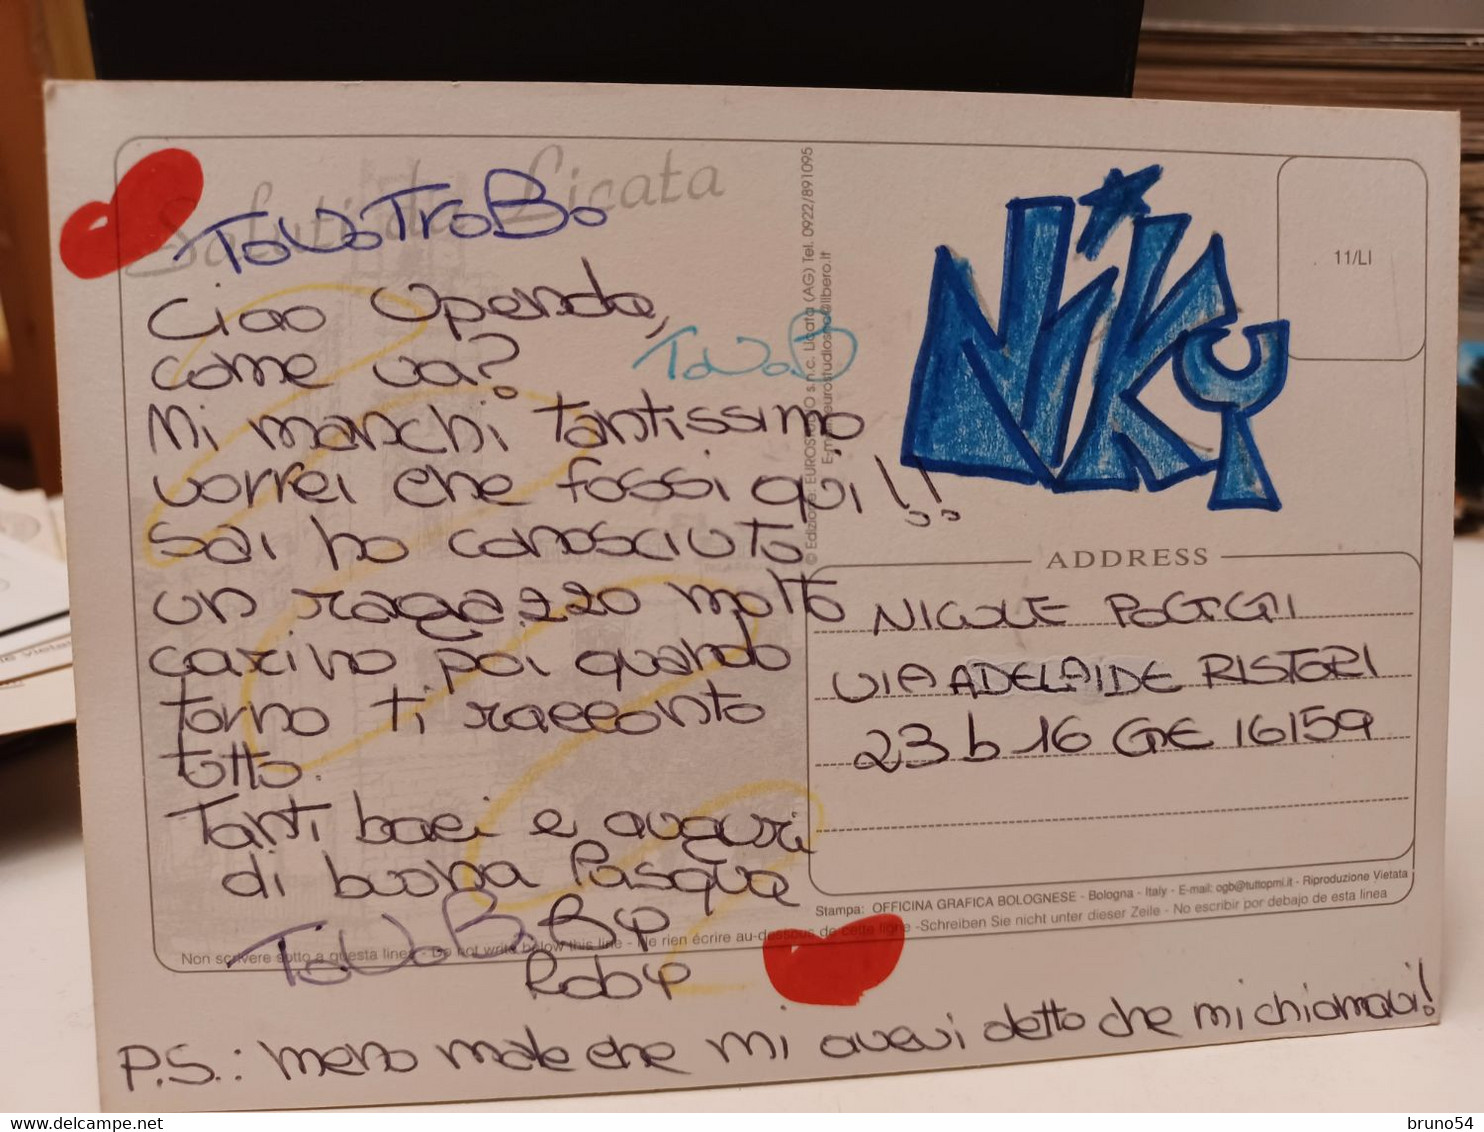 Saluti da Licata
TVoVoTroBo
Ciao Upenda,
come va?
TVoVoB
Mi manchi tantissimo
vorrei che fossi qui!!
Sai ho conosciuto
un ragazzo molto
carino poi quando
torno ti racconto
tutto.
Tanti baci e auguri
di buona Pasqua
TVoVoB. By
Roby
P.S.: meno male che mi avevi detto che mi chiamavi!
Niky
11/LI
© Edizione: EUROSTUDIO s.n.c. Licata (AG) Tel. 0922/891095
ADDRESS
NICOLE POGGI
VIA ADELAIDE RISTORI
23 b 16 GE 16159
Stampa: OFFICINA GRAFICA BOLOGNESE - Bologna - Italy - E-mail: ogb@tuttopmi.it - Riproduzione Vietata
Non scrivere sotto a questa linea - Do not write below this line - Ne rien écrire au-dessous de cette ligne -Schreiben Sie nicht unter dieser Zeile - No escribir por debajo de esta linea
bruno54